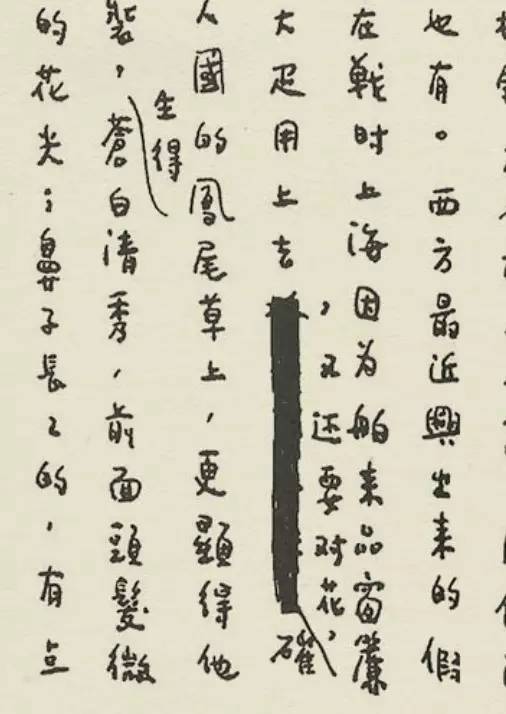 也有。西方最近興出来的假
在戰时上海因为舶来品窗簾
大疋用上去，又还要对花，確
人國的鳳尾草上，更顯得他
裝，生得蒼白清秀，前面頭髮微
的花尖；鼻子長〻的，有点